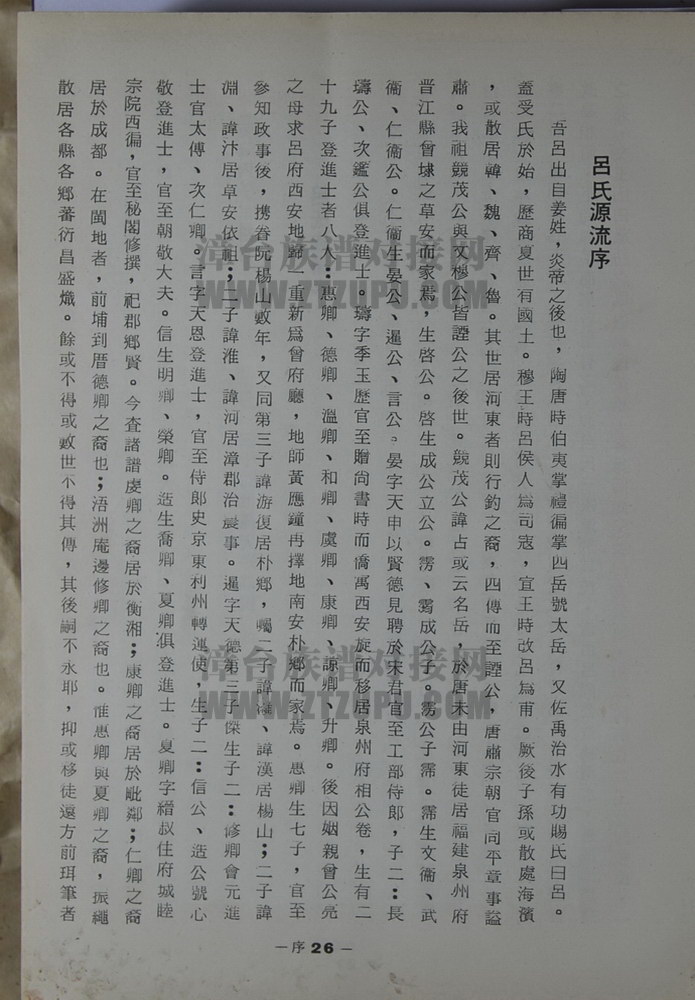 呂氏源流序
吾呂出自姜姓，炎帝之後也，陶唐時伯夷掌禮徧掌四岳號太岳，又佐禹治水有功賜氏曰呂。
蓋受氏於始，歷商夏世有國土。穆王時呂侯人為司寇，宣王時改呂為甫。厥後子孫或散處海濱
，或散居韓、魏、齊、魯。其世居河東者則行鈞之裔，四傳而至諲公，唐肅宗朝官同平章事謚
肅。我祖競茂公與文穆公皆諲公之後世。競茂公諱占或云名岳 於唐末由河東徒居福建泉州府
晋江縣曾埭之草安而家焉，生啓公。啓生成公立公。雱、靄成公子。雱公子霈。霈生文衞、武
衞、仁衞公。仁衞生晏公、暹公、言公。晏字天申以賢德見聘於宋君官至工部侍郎，子二：長
璹公、次鑑公俱登進士。璹字季玉歷官至贈尚書時而僑寓西安旋而移居泉州府相公巷，生有二
十九子登進士者八人：惠卿、德卿、溫卿、和卿、虞卿、康卿、諒卿、升卿。後因姻親曾公亮
之母求呂府西安地歸一重新為曾府廳，地師黃應鐘冉擇地南安朴鄉而家焉。惠卿生七子，官至
參知政事後，携眷阮楊山數年，又同第三子諱游復居朴鄉，囑二子諱、諱漢居楊山；二子諱
淵、諱汴居草安依祖；二子諱淮、諱河居漳郡治農事。暹字天德第三子傑生子二：修卿會元進
士官太傅、次仁卿。言字天恩登進士，官至侍郎史京東利州轉運使，生子二：信公、造公號心
敬登進士，官至朝敬大夫。信生明卿、榮卿。造生喬卿、夏卿俱登進士。夏卿字縉叔住府城睦
宗院西徧，官至秘閣修撰，祀郡鄉賢。今查諸譜虞卿之裔居於衡湘；康卿之裔居於毗鄰；仁卿之裔
居於成都。在閩地者，前埔到厝德卿之裔也；浯洲庵邊修卿之裔也。惟惠卿與夏卿之裔，振繩
散居各縣各鄉蕃衍昌盛熾。餘或不得或數世不得其傳，其後嗣不永耶，抑或移徒遠方前珥筆者
－序 26－
漳台族谱对接网
WWW.ZTZUPU.COM
漳台族谱对接网
WWW.ZTZUPU.COM